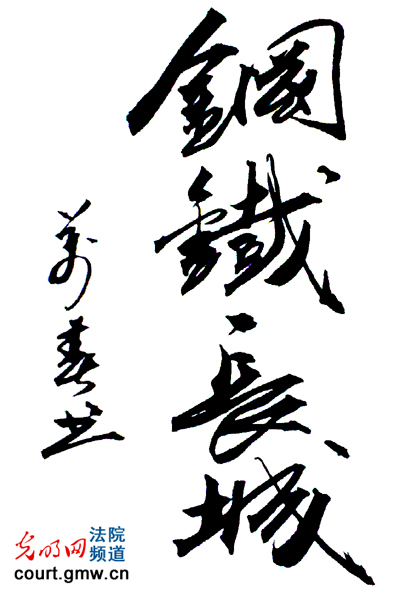 鋼鐵長城
萬春
光明网
法院
频道
court.gmw.cn